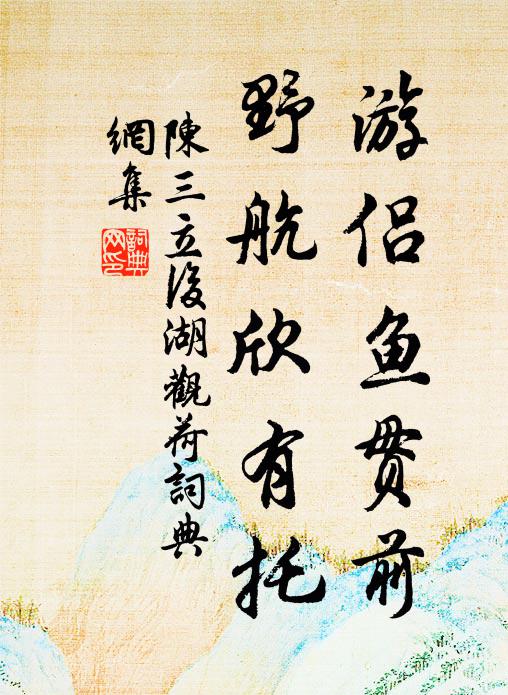 游侣鱼贯前
野航欣有托
陳三立後湖觀荷詞典
網集
詞典網印